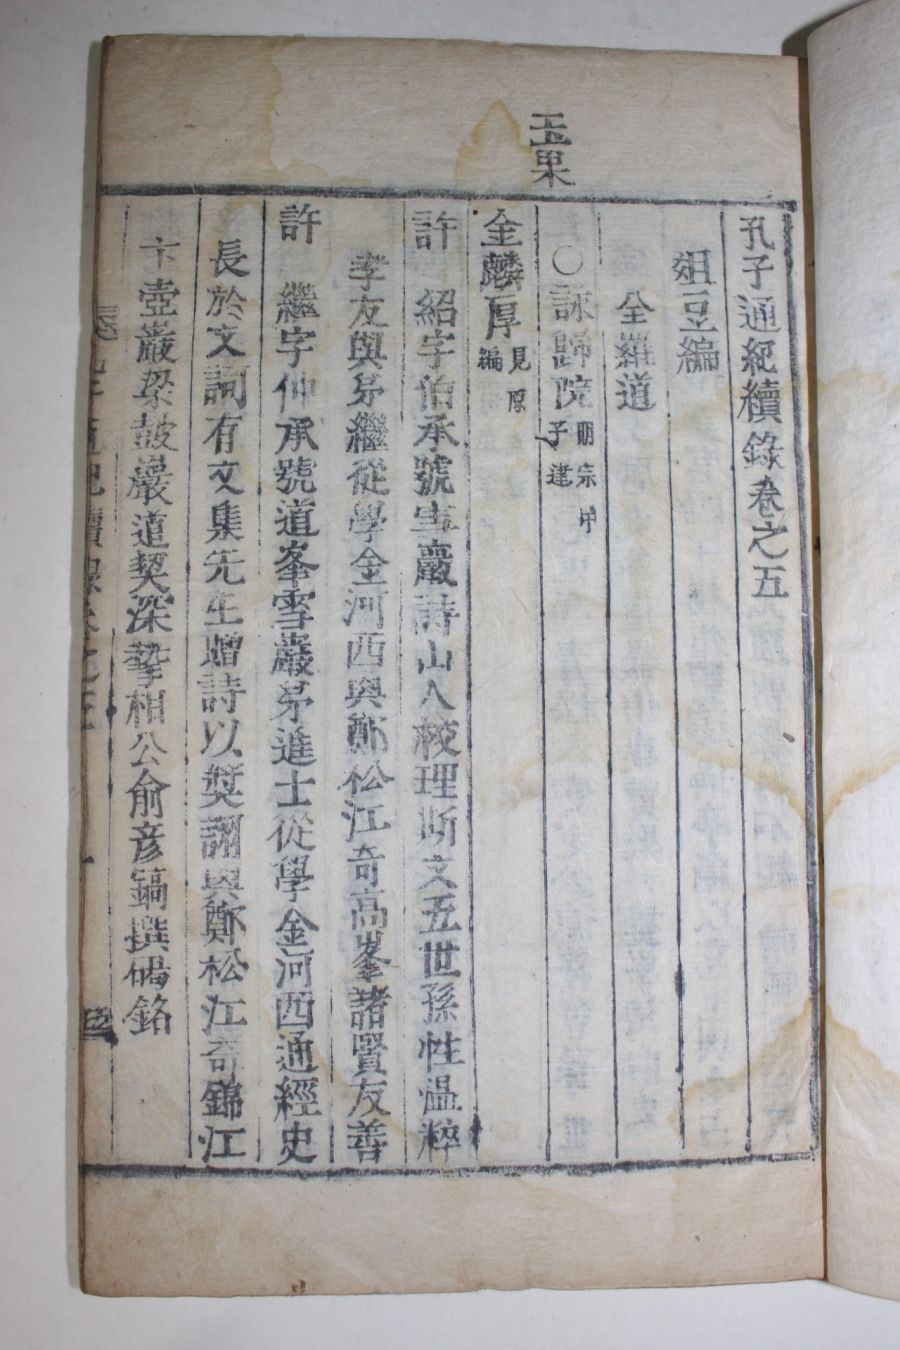 玉果
孔子通紀續錄卷之五
俎豆編
全羅道
〇詠歸院 明宗甲子建
金麟厚 見原編
許　紹字伯承號雪巖詩山人校理斯文五世孫性溫粹
孝友與弟繼從學金河西與鄭松江奇高峯諸賢友善
許　繼字仲承號道峯雪巖弟進士從學金河西通經史
長於文詞有文集先生贈詩以奬詡與鄭松江奇錦江
卞壺巖梁鼓巖道契深摯相公俞彦鎬撰碣銘